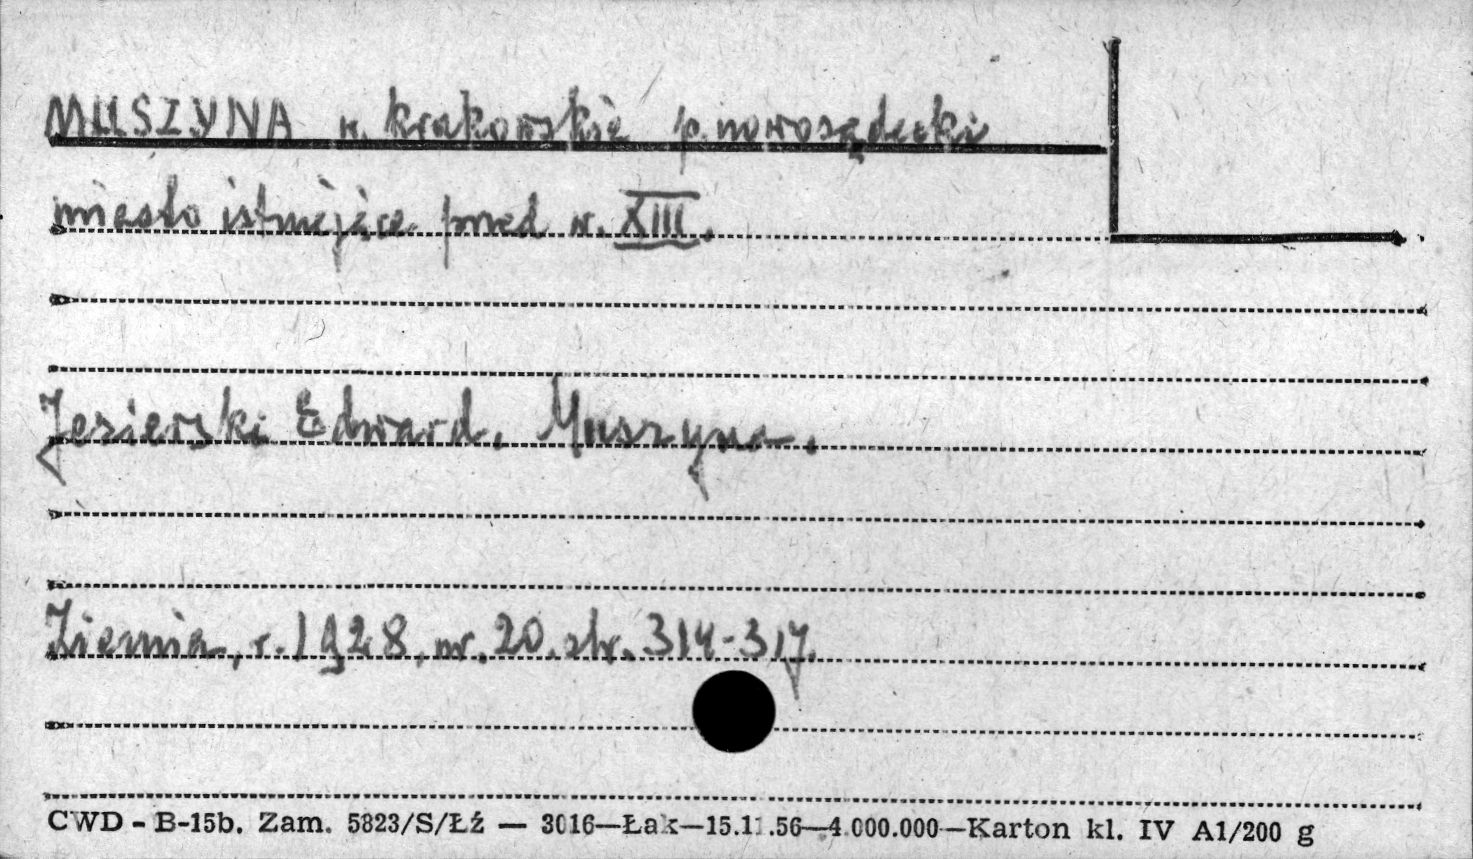 MUSZYNA w. krakowskie p. nowosądecki
miasto istniejące przed w. XIII.
Jezierski Edward. Muszyna.
Ziemia, r. 1928, nr. 20. str. 314-317.
CWD - B-15b. Zam. 5823/S/Łź — 3016—Łak—15.11.56—4.000.000—Karton kl. IV A1/200 g